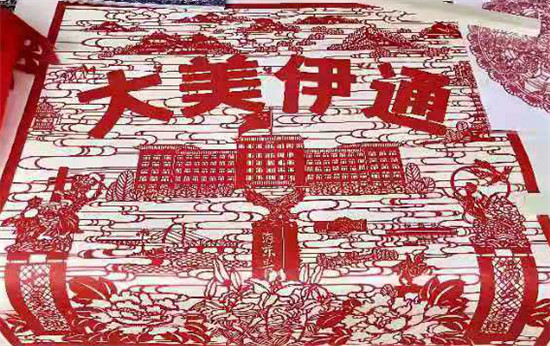 大美伊通